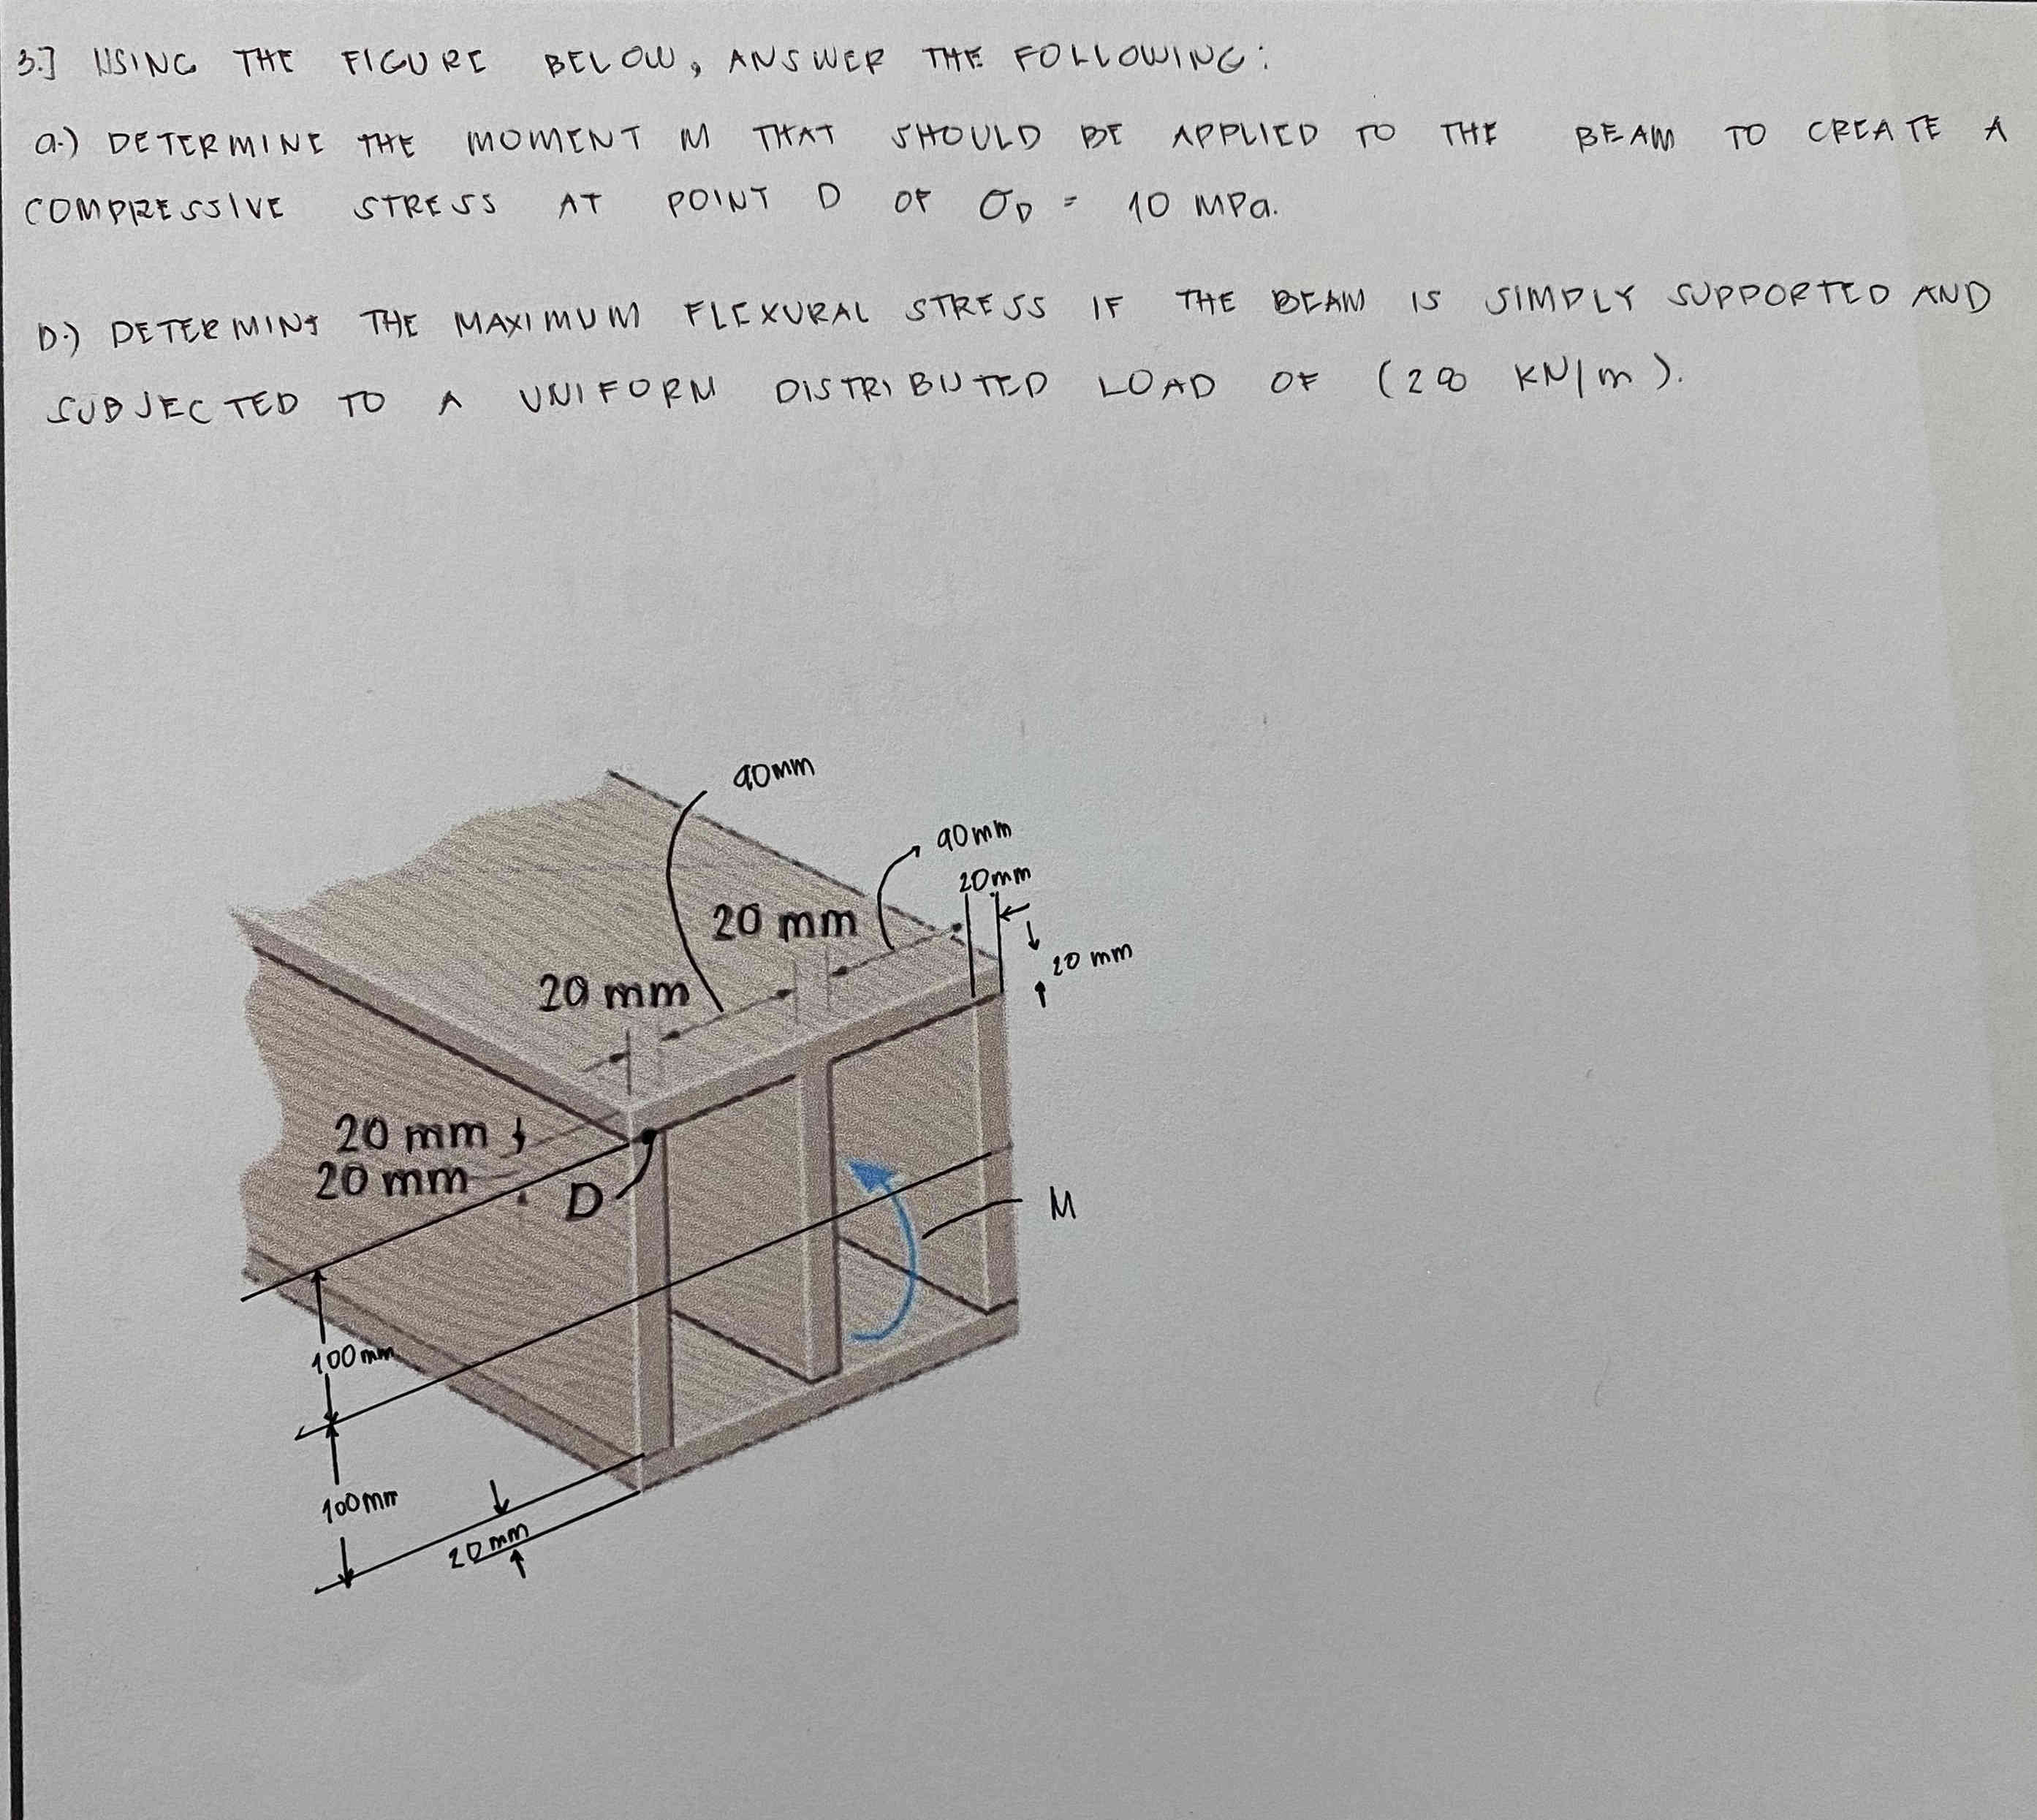 3.] USING THE FIGURE BELOW, ANSWER THE FOLLOWING:
a.) DETERMINE THE MOMENT M THAT SHOULD BE APPLIED TO THE BEAM TO CREATE A
COMPRESSIVE STRESS AT POINT D OF σD = 10 MPa.
D.) DETERMINE THE MAXIMUM FLEXURAL STRESS IF THE BEAM IS SIMPLY SUPPORTED AND
SUBJECTED TO A UNIFORM DISTRIBUTED LOAD OF (28 KN/m).
90mm
90mm
20mm
20 mm
20 mm
20 mm
20 mm
20 mm
D
M
100mm
100mm
20mm